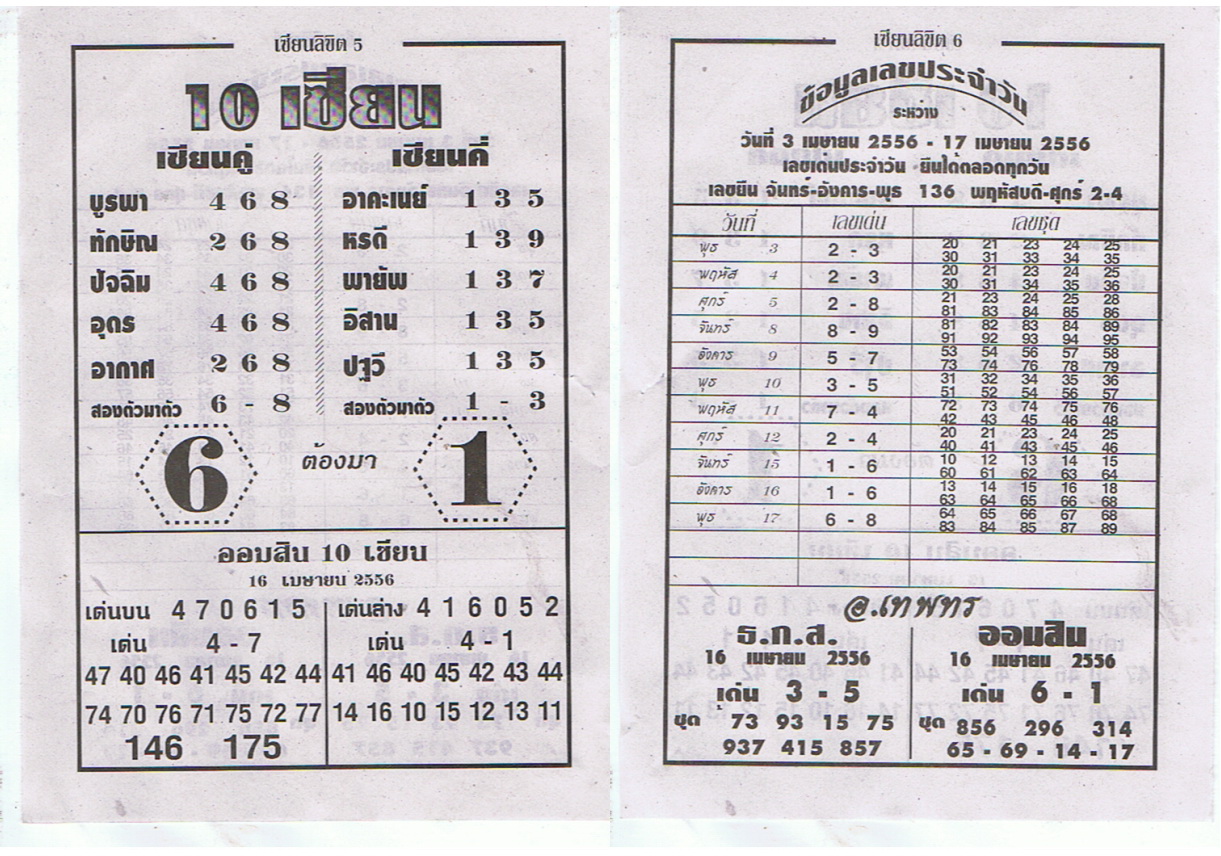 เซียนลิขิต 5
10 เซียน
เซียนคู่ เซียนคี่
บูรพา 4 6 8 อาคะเนย์ 1 3 5
ทักษิณ 2 6 8 หรดี 1 3 9
ปัจฉิม 4 6 8 พายัพ 1 3 7
อุดร 4 6 8 อิสาน 1 3 5
อากาศ 2 6 8 ปฐวี 1 3 5
สองตัวมาตัว 6 - 8 สองตัวมาตัว 1 - 3
6 ต้องมา 1
ออมสิน 10 เซียน
16 เมษายน 2556
เด่นบน 4 7 0 6 1 5 เด่นล่าง 4 1 6 0 5 2
เด่น 4 - 7 เด่น 4 - 1
47 40 46 41 45 42 44 41 46 40 45 42 43 44
74 70 76 71 75 72 77 14 16 10 15 12 13 11
146 175
เซียนลิขิต 6
ข้อมูลเลขประจำวัน
ระหว่าง
วันที่ 3 เมษายน 2556 - 17 เมษายน 2556
เลขเด่นประจำวัน - ยืนได้ตลอดทุกวัน
เลขยืน จันทร์-อังคาร-พุธ 136 พฤหัสบดี-ศุกร์ 2-4
วันที่ เลขเด่น เลขชุด
พุธ 3 2 - 3 20 21 23 24 25
30 31 33 34 35
พฤหัส 4 2 - 3 20 21 23 24 25
30 31 34 35 36
ศุกร์ 5 2 - 8 21 23 24 25 28
81 83 84 85 86
จันทร์ 8 8 - 9 81 82 83 84 89
91 92 93 94 95
อังคาร 9 5 - 7 53 54 56 57 58
73 74 76 78 79
พุธ 10 3 - 5 31 32 34 35 36
51 52 54 56 57
พฤหัส 11 7 - 4 72 73 74 75 76
42 43 45 46 48
ศุกร์ 12 2 - 4 20 21 23 24 25
40 41 43 45 46
จันทร์ 15 1 - 6 10 12 13 14 15
60 61 62 63 64
อังคาร 16 1 - 6 13 14 15 16 18
63 64 65 66 68
พุธ 17 6 - 8 64 65 66 67 68
83 84 85 87 89
อ.เทพทร
ธ.ก.ส. ออมสิน
16 เมษายน 2556 16 เมษายน 2556
เด่น 3 - 5 เด่น 6 - 1
ชุด 73 93 15 75 ชุด 856 296 314
937 415 857 65 - 69 - 14 - 17